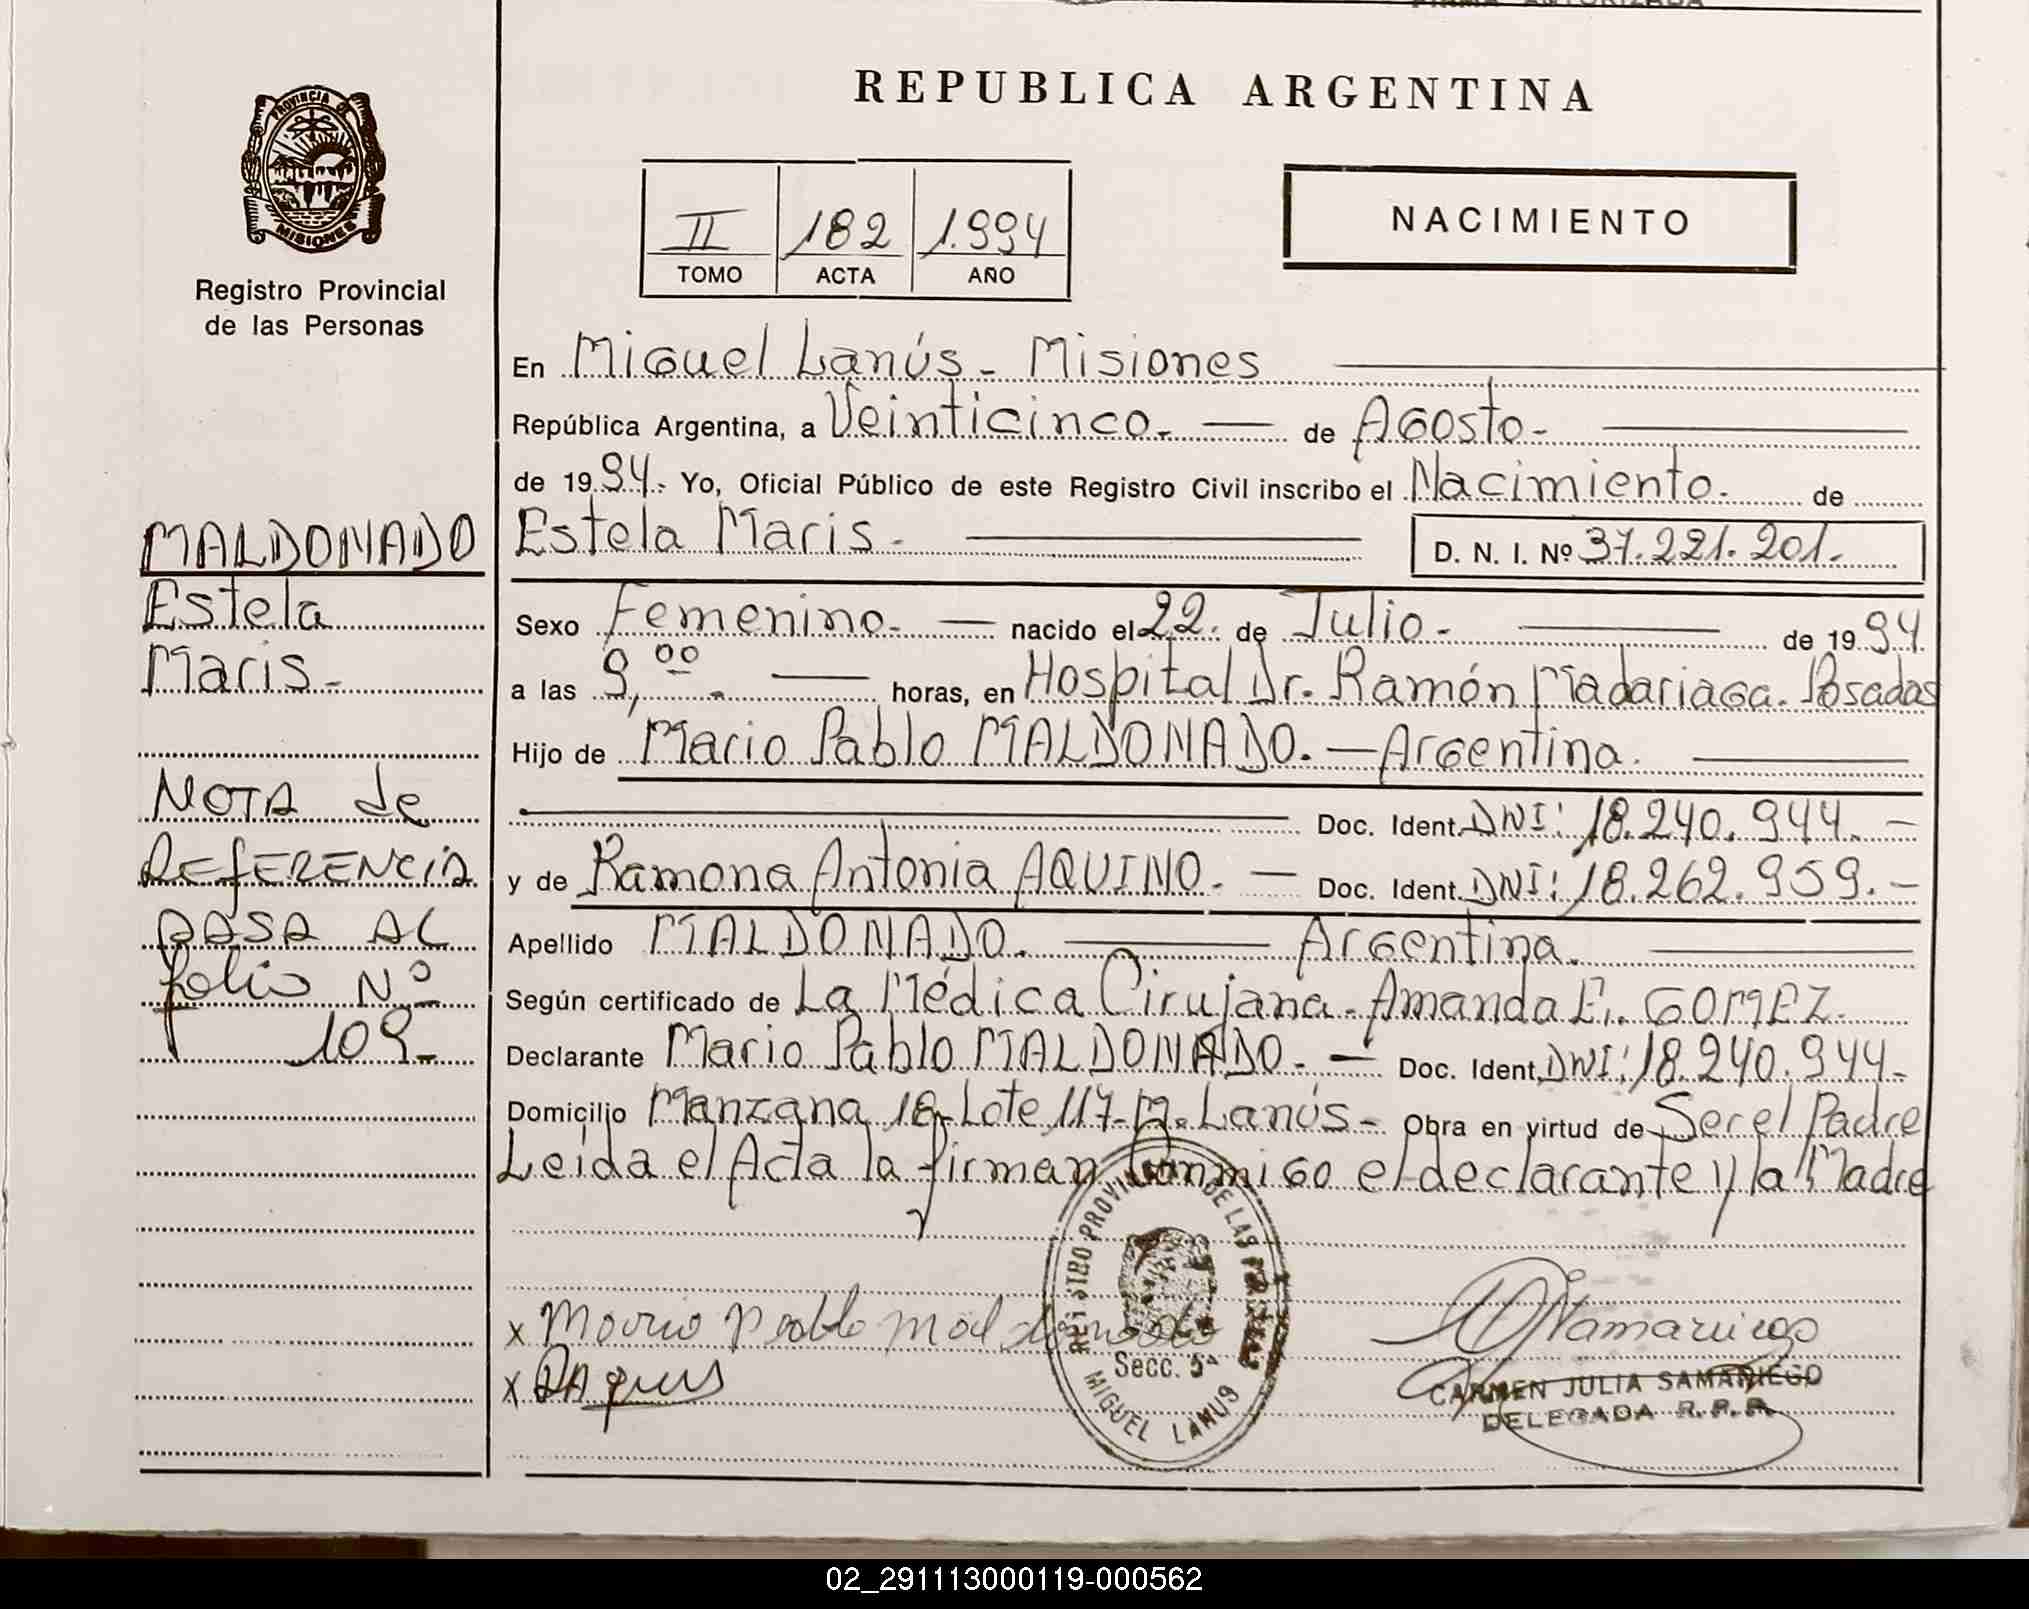 REPUBLICA ARGENTINA
PROVINCIA D
MISIONES
Registro Provincial
de las Personas
II 182 1.994
TOMO ACTA AÑO
NACIMIENTO
En Miguel Lanús - Misiones
República Argentina, a Veinticinco. de Agosto -
de 1994. Yo, Oficial Público de este Registro Civil inscribo el Nacimiento. de
Estela Maris. D. N. I. Nº 37.221.201.
Sexo Femenino. nacido el 22. de Julio. de 1994
a las 9,00. horas, en Hospital Dr. Ramón Madariaga. Posadas
Hijo de Mario Pablo MALDONADO. - Argentina.
Doc. Ident. DNI: 18.240.944. -
y de Ramona Antonia AQUINO. - Doc. Ident. DNI: 18.262.959. -
Apellido MALDONADO. Argentina.
Según certificado de La Médica Cirujana. Amanda E. GOMEZ.
Declarante Mario Pablo MALDONADO. - Doc. Ident. DNI: 18.240.944.
Domicilio Manzana 18-Lote 117-M. Lanús - Obra en virtud de Ser el Padre
Leída el Acta la firman Conmigo el declarante y la Madre
MALDONADO
Estela
Maris -
NOTA de
REFERENCIA
PASA AL
folio Nº
109 -
x Mario Pablo Maldonado
x RAquino
REGISTRO PROVINCIAL DE LAS PERSONAS
Secc. 5ª
MIGUEL LANUS
CARMEN JULIA SAMARIEGO
DELEGADA R.P.P.
02_291113000119-000562